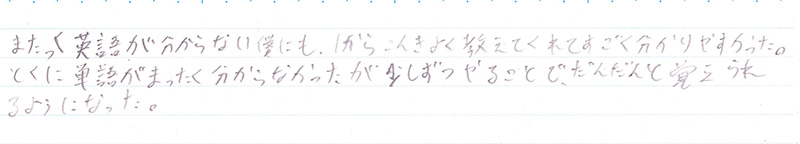 またっく英語が分からない僕にも、1からこんきよく教えてくれてすごく分かりやすかった。
とくに単語がまったく分からなかったが少しずつやることで、だんだんと覚えられ
るようになった。